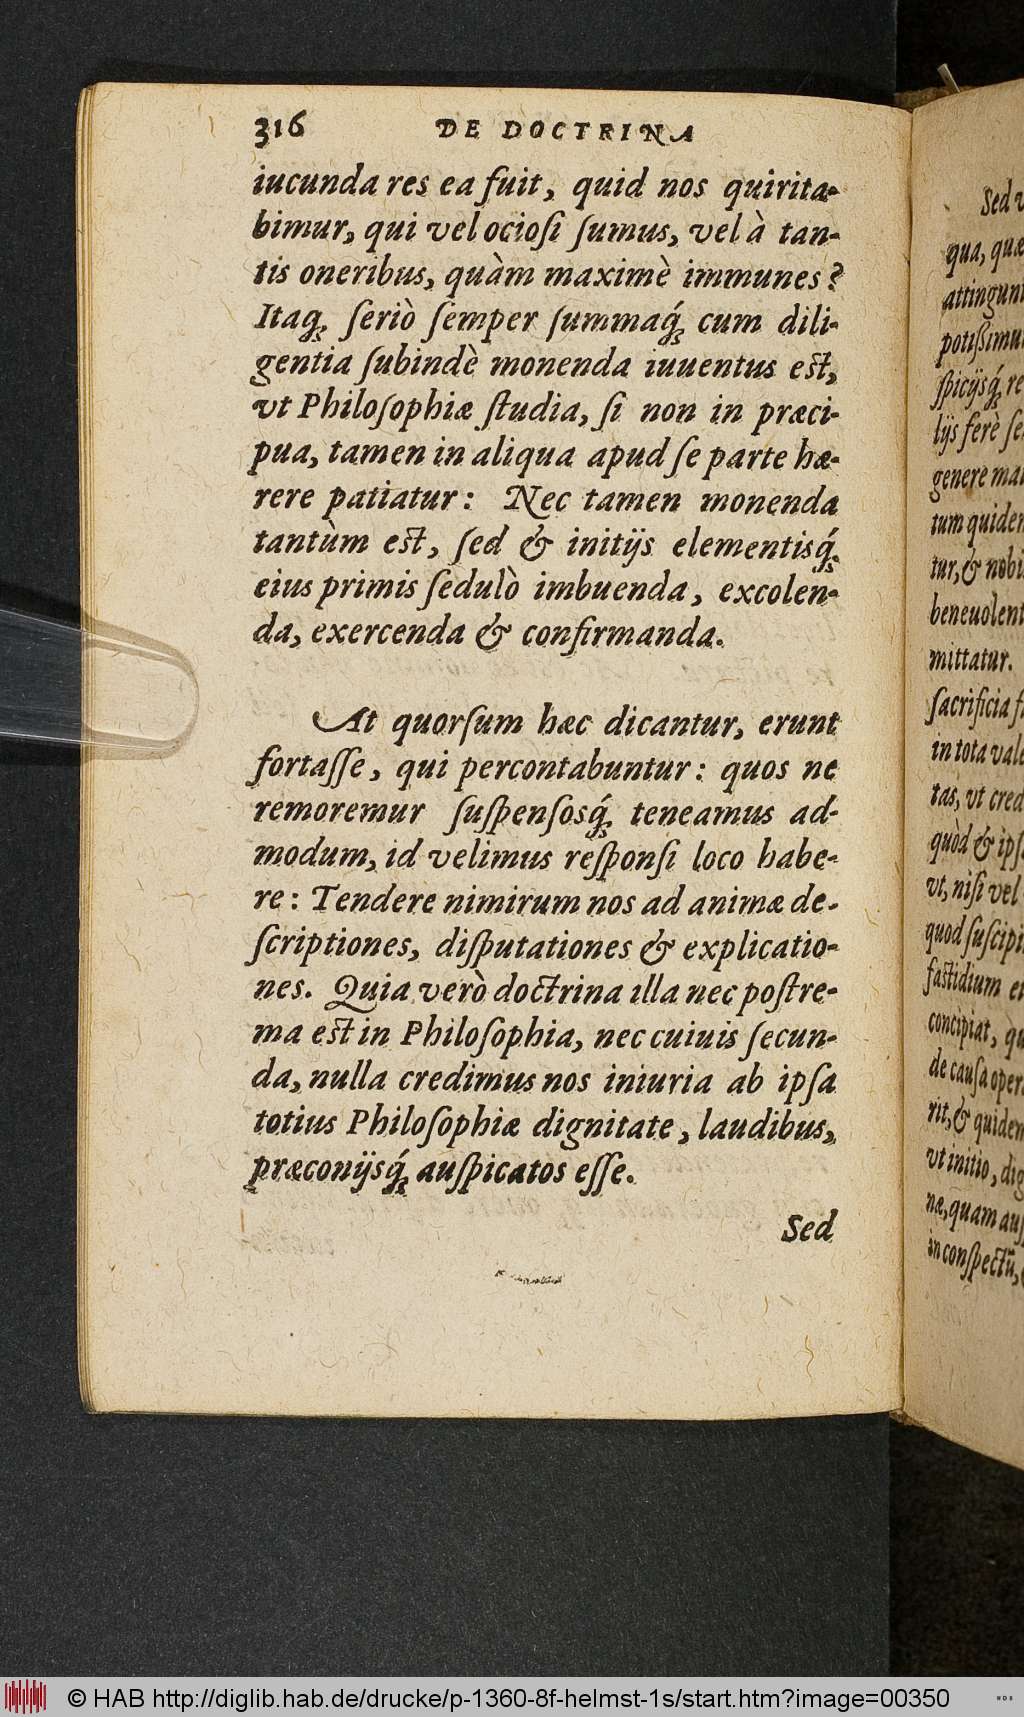 316 DE DOCTRINA
iucunda res ea fuit, quid nos quirita-
bimur, qui vel ociosi ſumus, vel à tan-
tis oneribus, quàm maximè immunes?
Itaq́; ſeriò ſemper ſummaq́; cum dili-
gentia ſubindè monenda iuuentus est,
vt Philoſophiæ ſtudia, ſi non in præci-
pua, tamen in aliqua apud ſe parte hæ-
rere patiatur: Nec tamen monenda
tantùm est, ſed & initijs elementisq́;
eius primis ſedulò imbuenda, excolen-
da, exercenda & confirmanda.
At quorſum hæc dicantur, erunt
fortaſſe, qui percontabuntur: quos ne
remoremur ſuſpenſosq́; teneamus ad-
modum, id velimus reſponſi loco habe-
re: Tendere nimirum nos ad animæ de-
ſcriptiones, diſputationes & explicatio-
nes. Quia verò doctrina illa nec poſtre-
ma est in Philoſophia, nec cuiuis ſecun-
da, nulla credimus nos iniuria ab ipſa
totius Philoſophiæ dignitate, laudibus,
præconijsq́; auſpicatos eſſe.
Sed
Sed
qua, quæ
attingunt
ſpicijsq́; re
lijs ferè
genere
tum quidem
tur, &
mittatur.
ſacrificia
in tota
tas, vt
quòd & ipſ
vt, niſi vel
quod
faſtidium
concipiat,
de cauſa
rit, & quidem
vt initio,
næ, quam
in conſpectū,
© HAB http://diglib.hab.de/drucke/p-1360-8f-helmst-1s/start.htm?image=00350